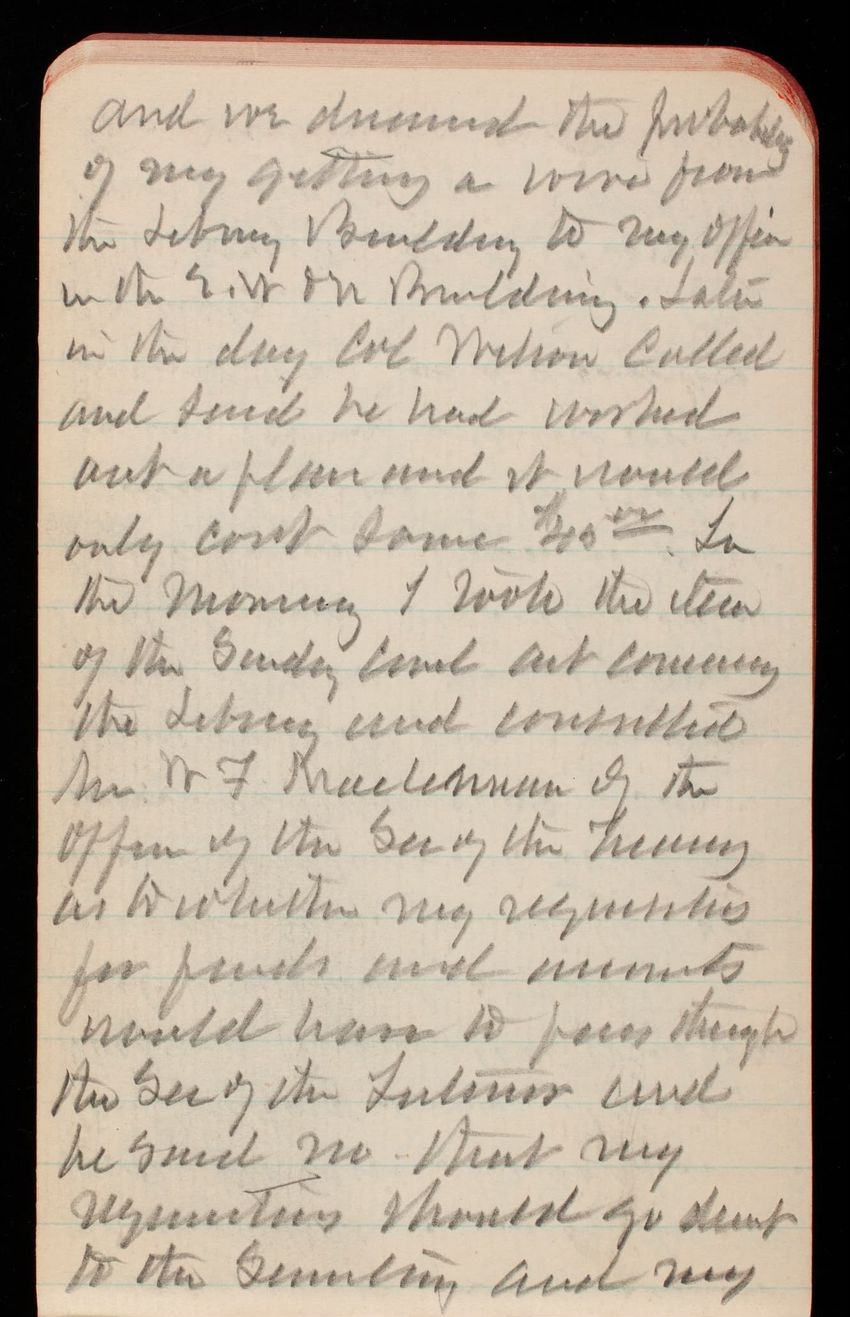 and we discussed the probability
of my getting a wire from
the Library Building to my office
in the S. W & N Building. Later
in the day Col Wilson called
and said he had worked
out a plan and it would
only cost some $40 00. In
the morning I took the item
of the Sunday Civil act concerning
the Library and consulted
Mr W F Maclennan of the
Office of the Sec of the Treasury
as to whether my requisitions
for funds and accounts
would have to pass through
the Sec of the Interior and
he said no - that my
requisitions should go direct
to the Secretary and my